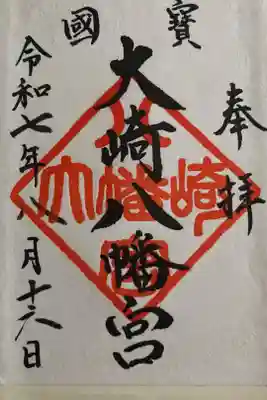 國寶
奉拝
大崎八幡宮
令和七年八月十六日
大崎八幡宮